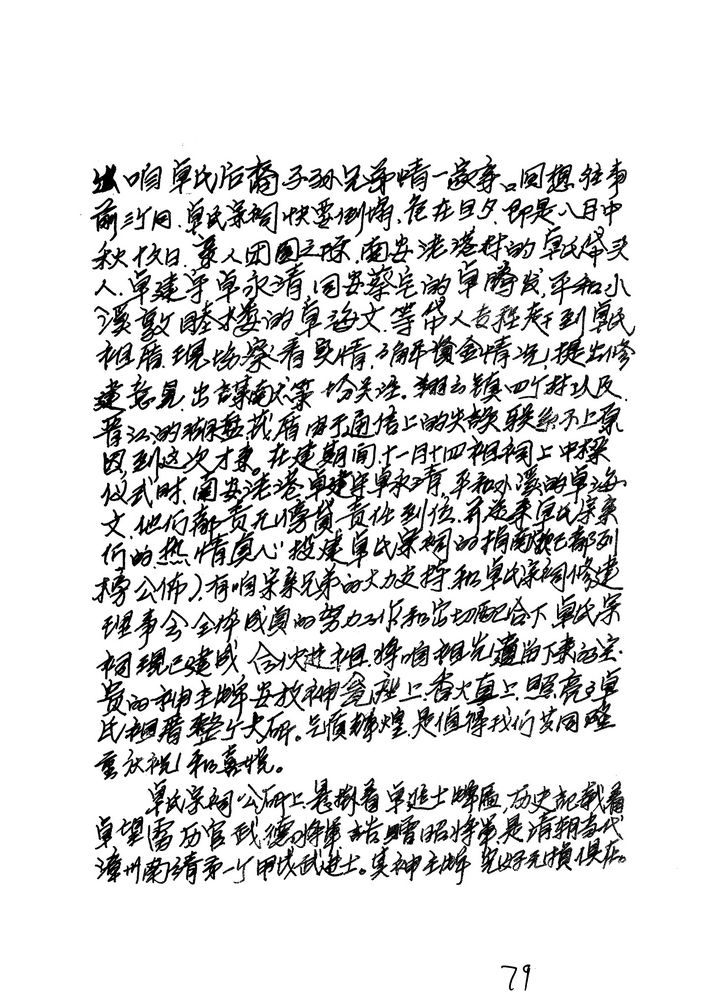 出咱卓氏后裔子孙兄弟情一家亲。回想往事
前三个月.卓氏宗祠快要倒塌.危在旦夕.即是八月中
秋十五日.亲人团圆之际.南安洪港村的卓氏带头
人.卓建宇.卓永清.同安蔡宅的卓腾发.平和小
溪敦睦楼的卓海文.等带人专程来到卓氏
祖厝.现场察看实情.了解资金情况,提出修
建意见.出谋献策.切关注.翔云镇四个村以及
晋江的厝由于通信上的失误联络不上原
因到这次才来。在建期间.十一月十四祖祠上中梁
仪式时.南安洪港.卓建宇卓永清,平和小溪的卓海
文.他们都责无旁贷责任到位.并送来卓氏宗亲
们的热情真心投建卓氏宗祠的捐献款(已都列
榜公佈).有咱宗亲兄弟的大力支持.和卓氏宗祠修建
理事会全体成员的努力工作和密切配合下.卓氏宗
祠现已建成.合伙进祖.将咱祖先遗留下来的宝
贵的神主牌安放神龛座上.香火直上.照亮了卓
氏祖厝整个大研。元倾辉煌.是值得我们共同隆
重庆祝!和喜悦。
卓氏宗祠公研上.悬掛着卓进士牌匾,历史记载着
卓望雷历官武德将军诰赠昭将军.是清朝当代
漳州南靖第一个甲戌武进士。其神主牌完好无损俱在。
79